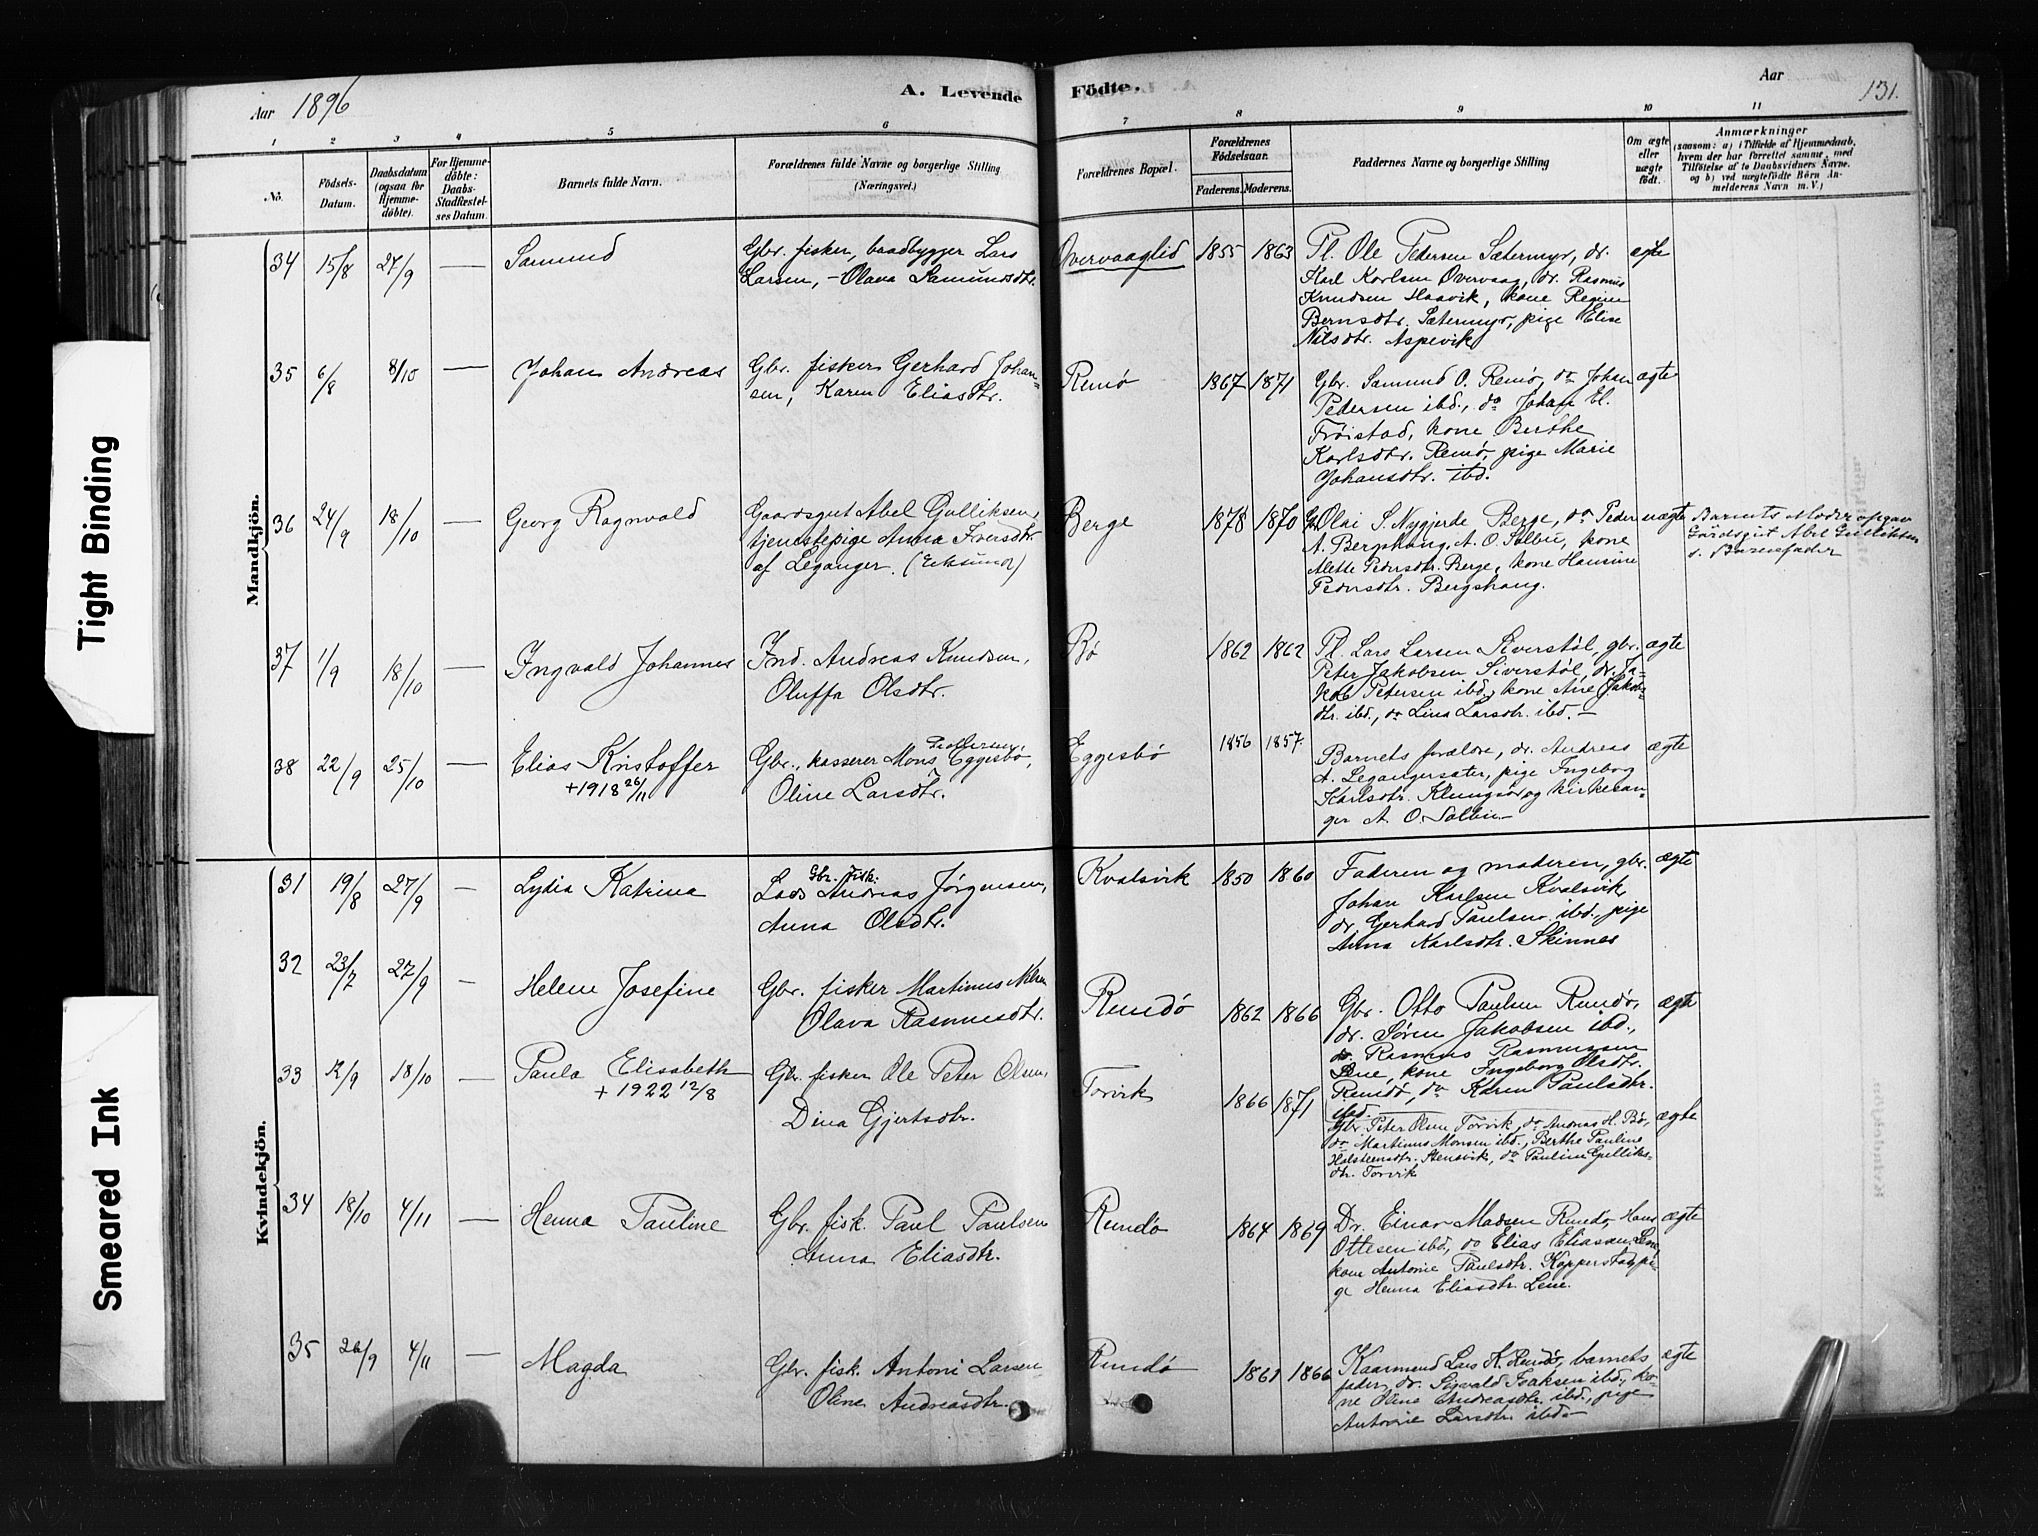 Aar 1896
A. Levende
Fødte.
Aar
131.
1 2 3 4 5 6 7 8 9 10 11
No.
Fødsels-
Datum.
Daabsdatum
(ogsaa for
Hjemme-
døbte).
For Hjemme-
døbte:
Daabs-
Stadfæstel-
ses Datum.
Barnets fulde Navn.
Forældrenes fulde Navne og borgerlige Stilling
(Næringsvei.)
Forældrenes Bopæl.
Forældrenes
Fødselsaar.
Faderens. Moderens.
Faddernes Navne og borgerlige Stilling
Om ægte
eller
uægte
født.
Anmærkninger
(saasom: a) i Tilfælde af Hjemmedaab,
hvem der har forrettet samme, med
Tilføielse af to Daabsvidners Navne.
og b) ved uægtefødte Børn An-
melderens Navn m. V.)
Mandkjøn.
34 15/8 27/9 —
Samund
Gbr. fisker, baadbygger Lars
Larsen, - Olava Samundsdtr.
Overvaaglid 1855 1863
Pl. Ole Pedersen Sætermyr, dr.
Karl Karlsen Overvaag, dr. Rasmus
Knudsen Haavik, kone Regine
Berntsdtr. Sætermyr, pige Elise
Nilsdtr. Aspevik
ægte
35 6/8 8/10 —
Johan Andreas
Gbr. fisker Gerhard Johan-
sen, Karen Eliasdtr.
Remø 1867 1871
Gbr. Samund O. Remø, do Johan
Pedersen ibd., do Johan El.
Frøistad, kone Berthe
Karlsdtr. Remø, pige Marie
Johansdtr. ibd.
ægte
36 24/9 18/10 —
Georg Ragnvald
Gaardsgut Abel Gulliksen,
tjenestepige Anna Iversdtr
af Leganger. (Eksund)
Berge 1878 1870
Gbr Olai S. Nygjerde Berge, do Peder
A. Bergshaug, A. O. Solbu, kone
Alette Pedersdtr. Berge, kone Hansine
Pedersdtr. Bergshaug.
uægte
Barnets Moder opgav
Gårdsgut Abel Gulliksen
s. Barnefader
37 1/9 18/10 —
Ingvald Johannes
Ind. Andreas Knudsen,
Oluffa Olsdtr.
Bø 1862 1862
Pl. Lars Larsen Siverstøl, gbr.
Peter Jakobsen Siverstøl, dr. Ja-
kob Petersen ibd., kone Ane Jakobs-
dtr. ibd., do Lina Larsdtr. ibd. —
ægte
38 22/9 25/10 —
Elias Kristoffer
+ 1918 26/11
Gbr., kasserer Mons Eggesbø,
Oline Larsdtr.
Eggesbø 1856 1857.
Barnets forældre, dr. Andreas
A. Legangersæter, pige Ingeborg
Karlsdtr. Klungsør og kirkesan-
ger A. O. Solbu —
ægte
Kvindekjøn.
31 19/8 27/9 —
Lydia Katrina
Gbr. fisk.
Lads Andreas Jørgensen,
Anna Olsdtr.
Kvalsvik 1850 1860
Faderen og moderen, gbr.
Johan Karlsen Kvalsvik
dr. Gerhard Paulsen ibd., pige
Anna Karlsdtr. Skinnes
ægte
32 23/7 27/9 —
Helene Josefine
Gbr. fisker Martinus Nilsen
Olava Rasmusdtr.
Rundø 1862 1866
Gbr. Otto Paulsen Rundø,
dr. Søren Jakobsen ibd.,
dr. Rasmus Rasmussen
Lene, kone Ingeborg Olsdtr.
Rundø, do Karen Paulsdtr.
ibd.
ægte
33 12/9 18/10 —
Paula Elisabeth
+ 1922 12/8
Gbr. fisker Ole Peter Olsen,
Dina Gjertsdtr.
Torvik 1866 1871
Gbr. Peter Olsen Torvik, do Andreas H. Bø,
do Martinus Monsen ibd., Berthe Pauline
Holstensdtr. Stensvik, do Pauline Gulliks-
dtr. Torvik
ægte
34 18/10 4/11 —
Henna Pauline
Gbr. fisk. Paul Paulsen
Anna Eliasdtr.
Rundø 1864 1869
Dr. Einar Madsen Rundø, Hans
Ottesen ibd, do Elias Eliassen Lene,
kone Antonie Paulsdtr. Kopperstad, pi-
ge Henna Eliasdtr. Lene.
ægte
35 26/9 4/11 —
Magda
Gbr. fisk. Antoni Larsen
Oline Andreasdtr.
Rundø 1861 1866
Kaarmand Lars K. Rundø, barnets
fader, dr. Sigvald Isaksen ibd., ko-
ne Oline Andreasdtr. ibd., pige
Antonie Larsdtr. ibd.
ægte
Tight Binding
Smeared Ink